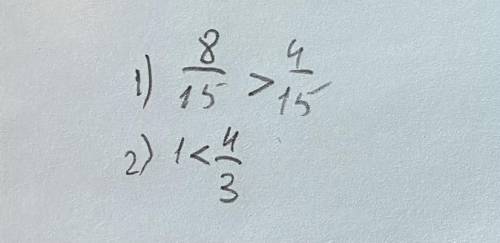 1) 8/15 > 4/15
2) 1 < 4/3